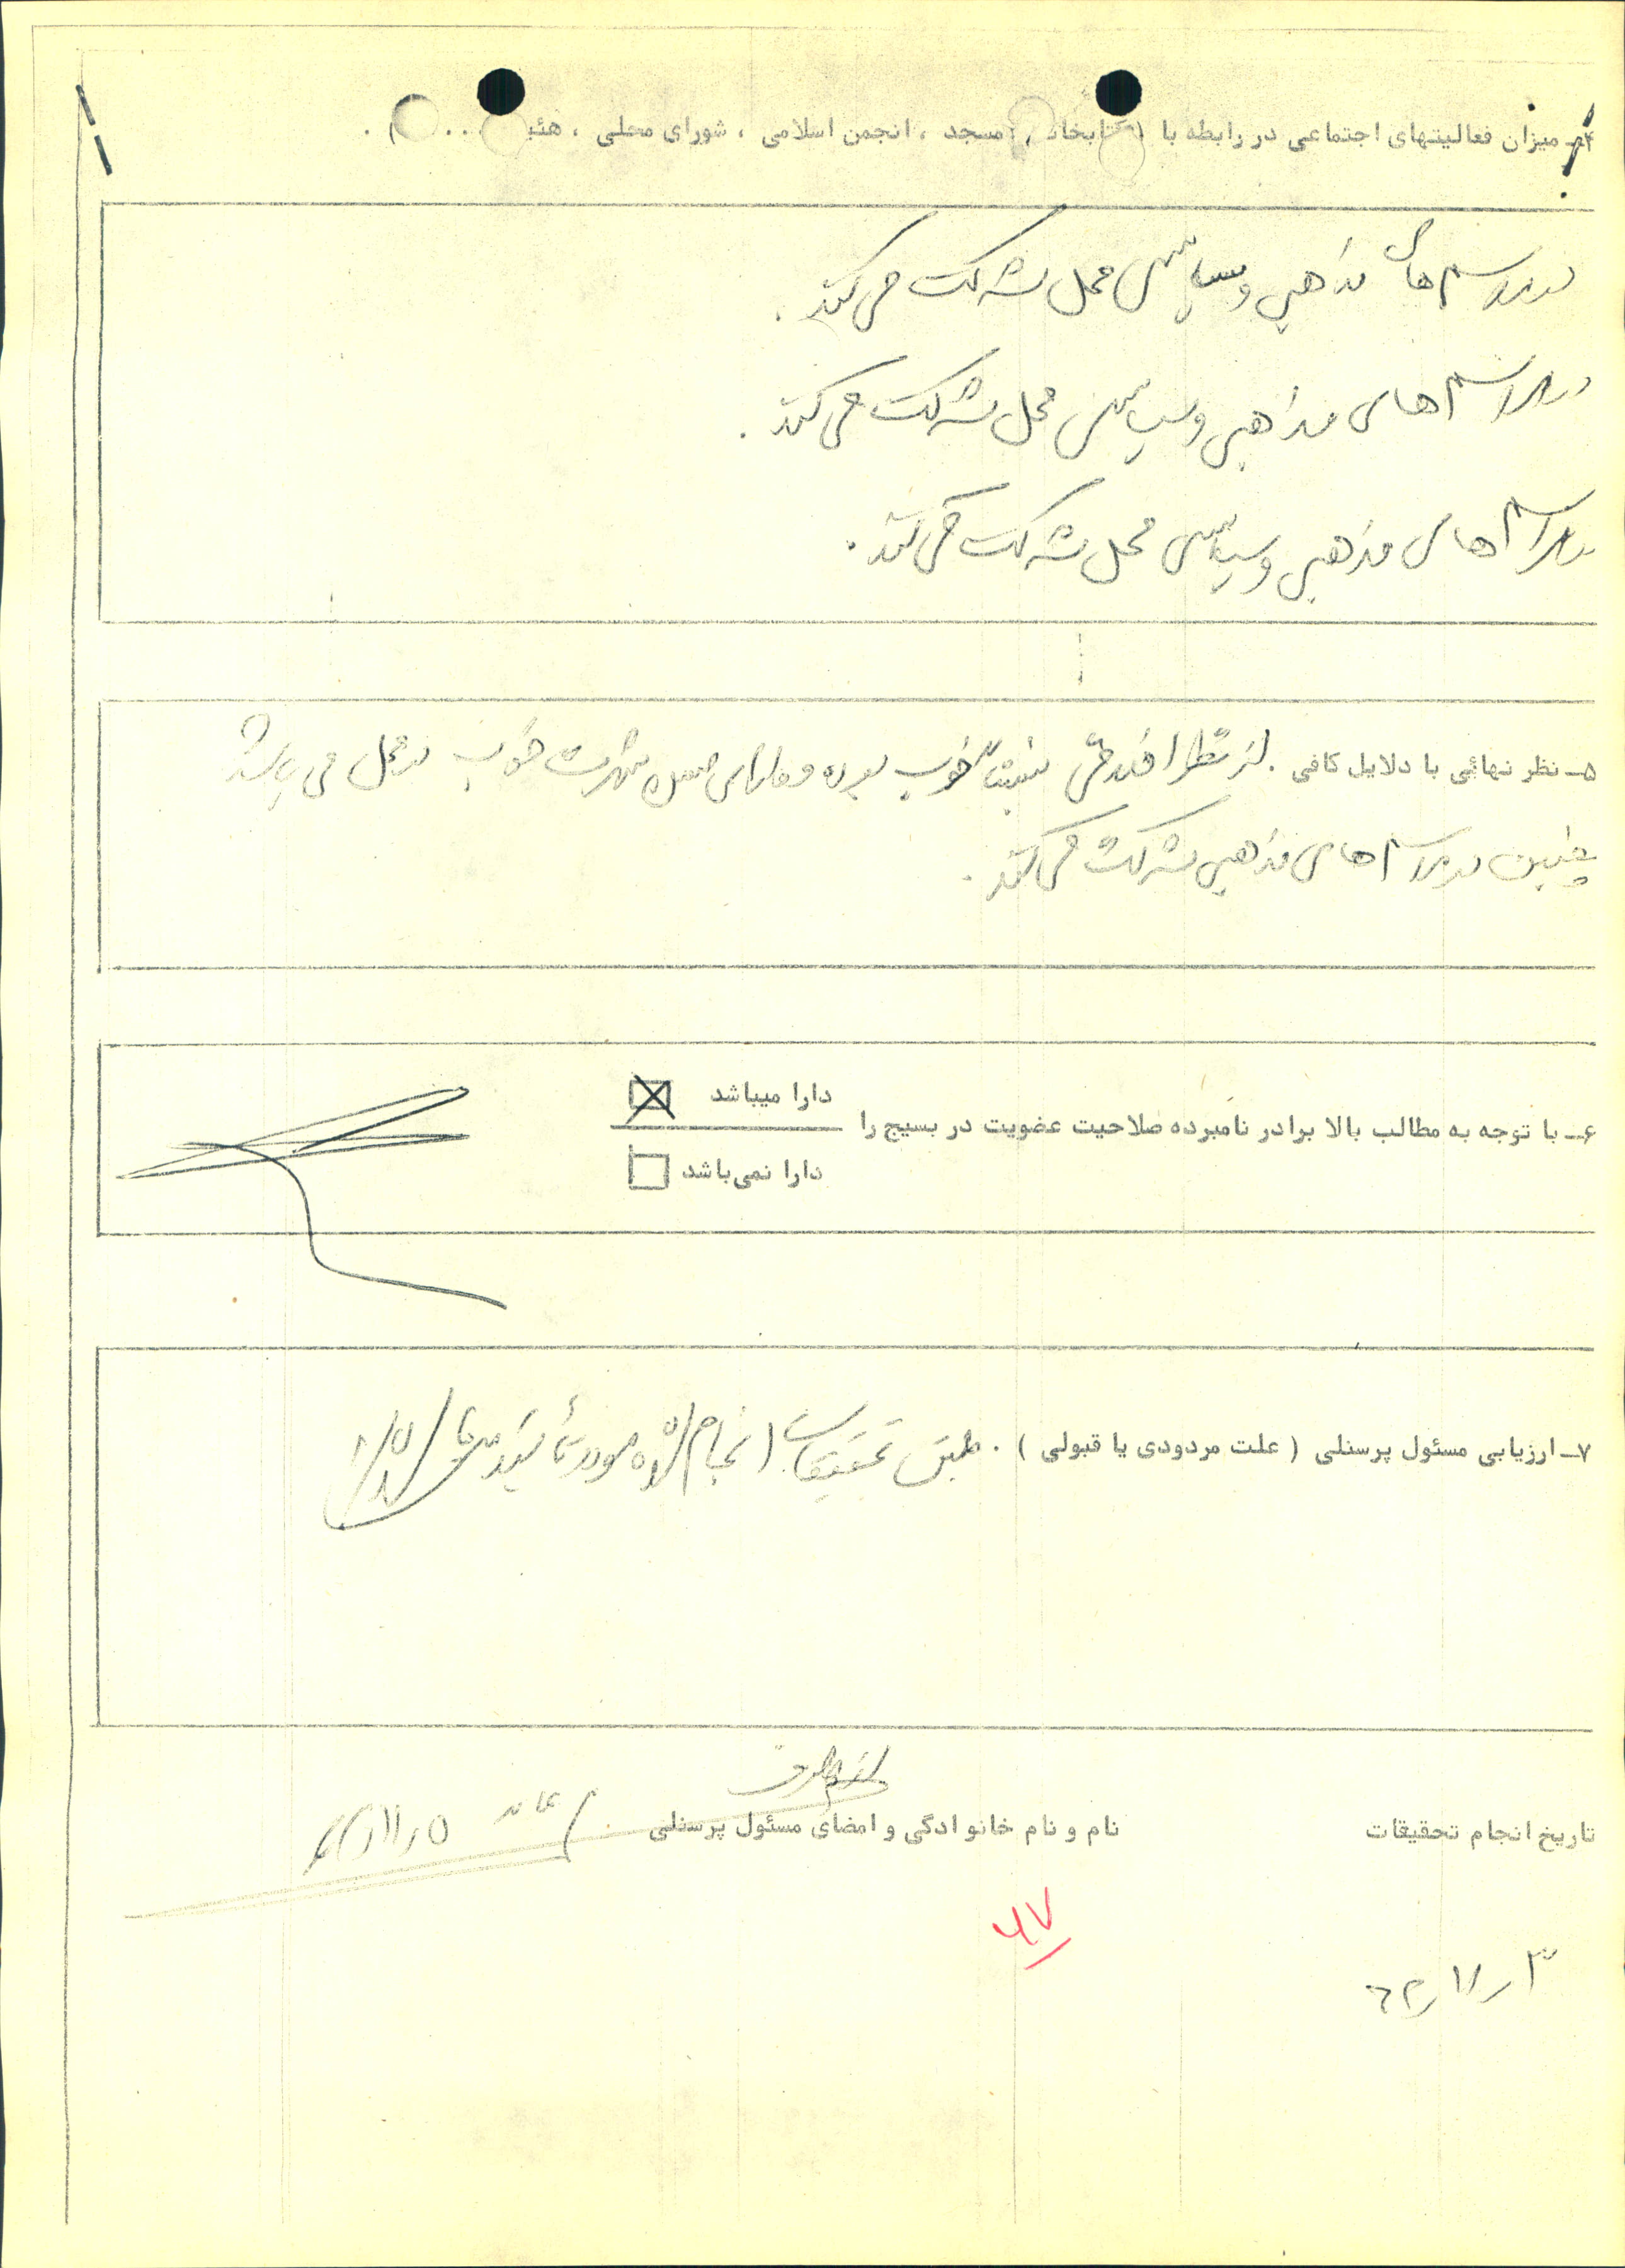 ۴ـ میزان فعالیتهای اجتماعی در رابطه با ( کتابخانه ، مسجد ، انجمن اسلامی ، شورای محلی ، هئیت ... ) .
در مراسم های مذهبی و سیاسی محل شرکت می کند .
در مراسم های مذهبی و سیاسی محل شرکت می کند .
در مراسم های مذهبی و سیاسی محل شرکت می کند .
۵ـ نظر نهائی با دلایل کافی . از نظر اخلاقی نسبتاً خوب بوده و دارای شهرت خوب در محل می باشد
همچنین در مراسم های مذهبی شرکت می کند .
۶ـ با توجه به مطالب بالا برادر نامبرده صلاحیت عضویت در بسیج را
دارا میباشد
دارا نمی باشد
۷ـ ارزیابی مسئول پرسنلی ( علت مردودی یا قبولی ) . طبق تحقیقات انجام شده مورد تأئید میباشد
تاریخ انجام تحقیقات
نام و نام خانوادگی و امضای مسئول پرسنلی
۶۷